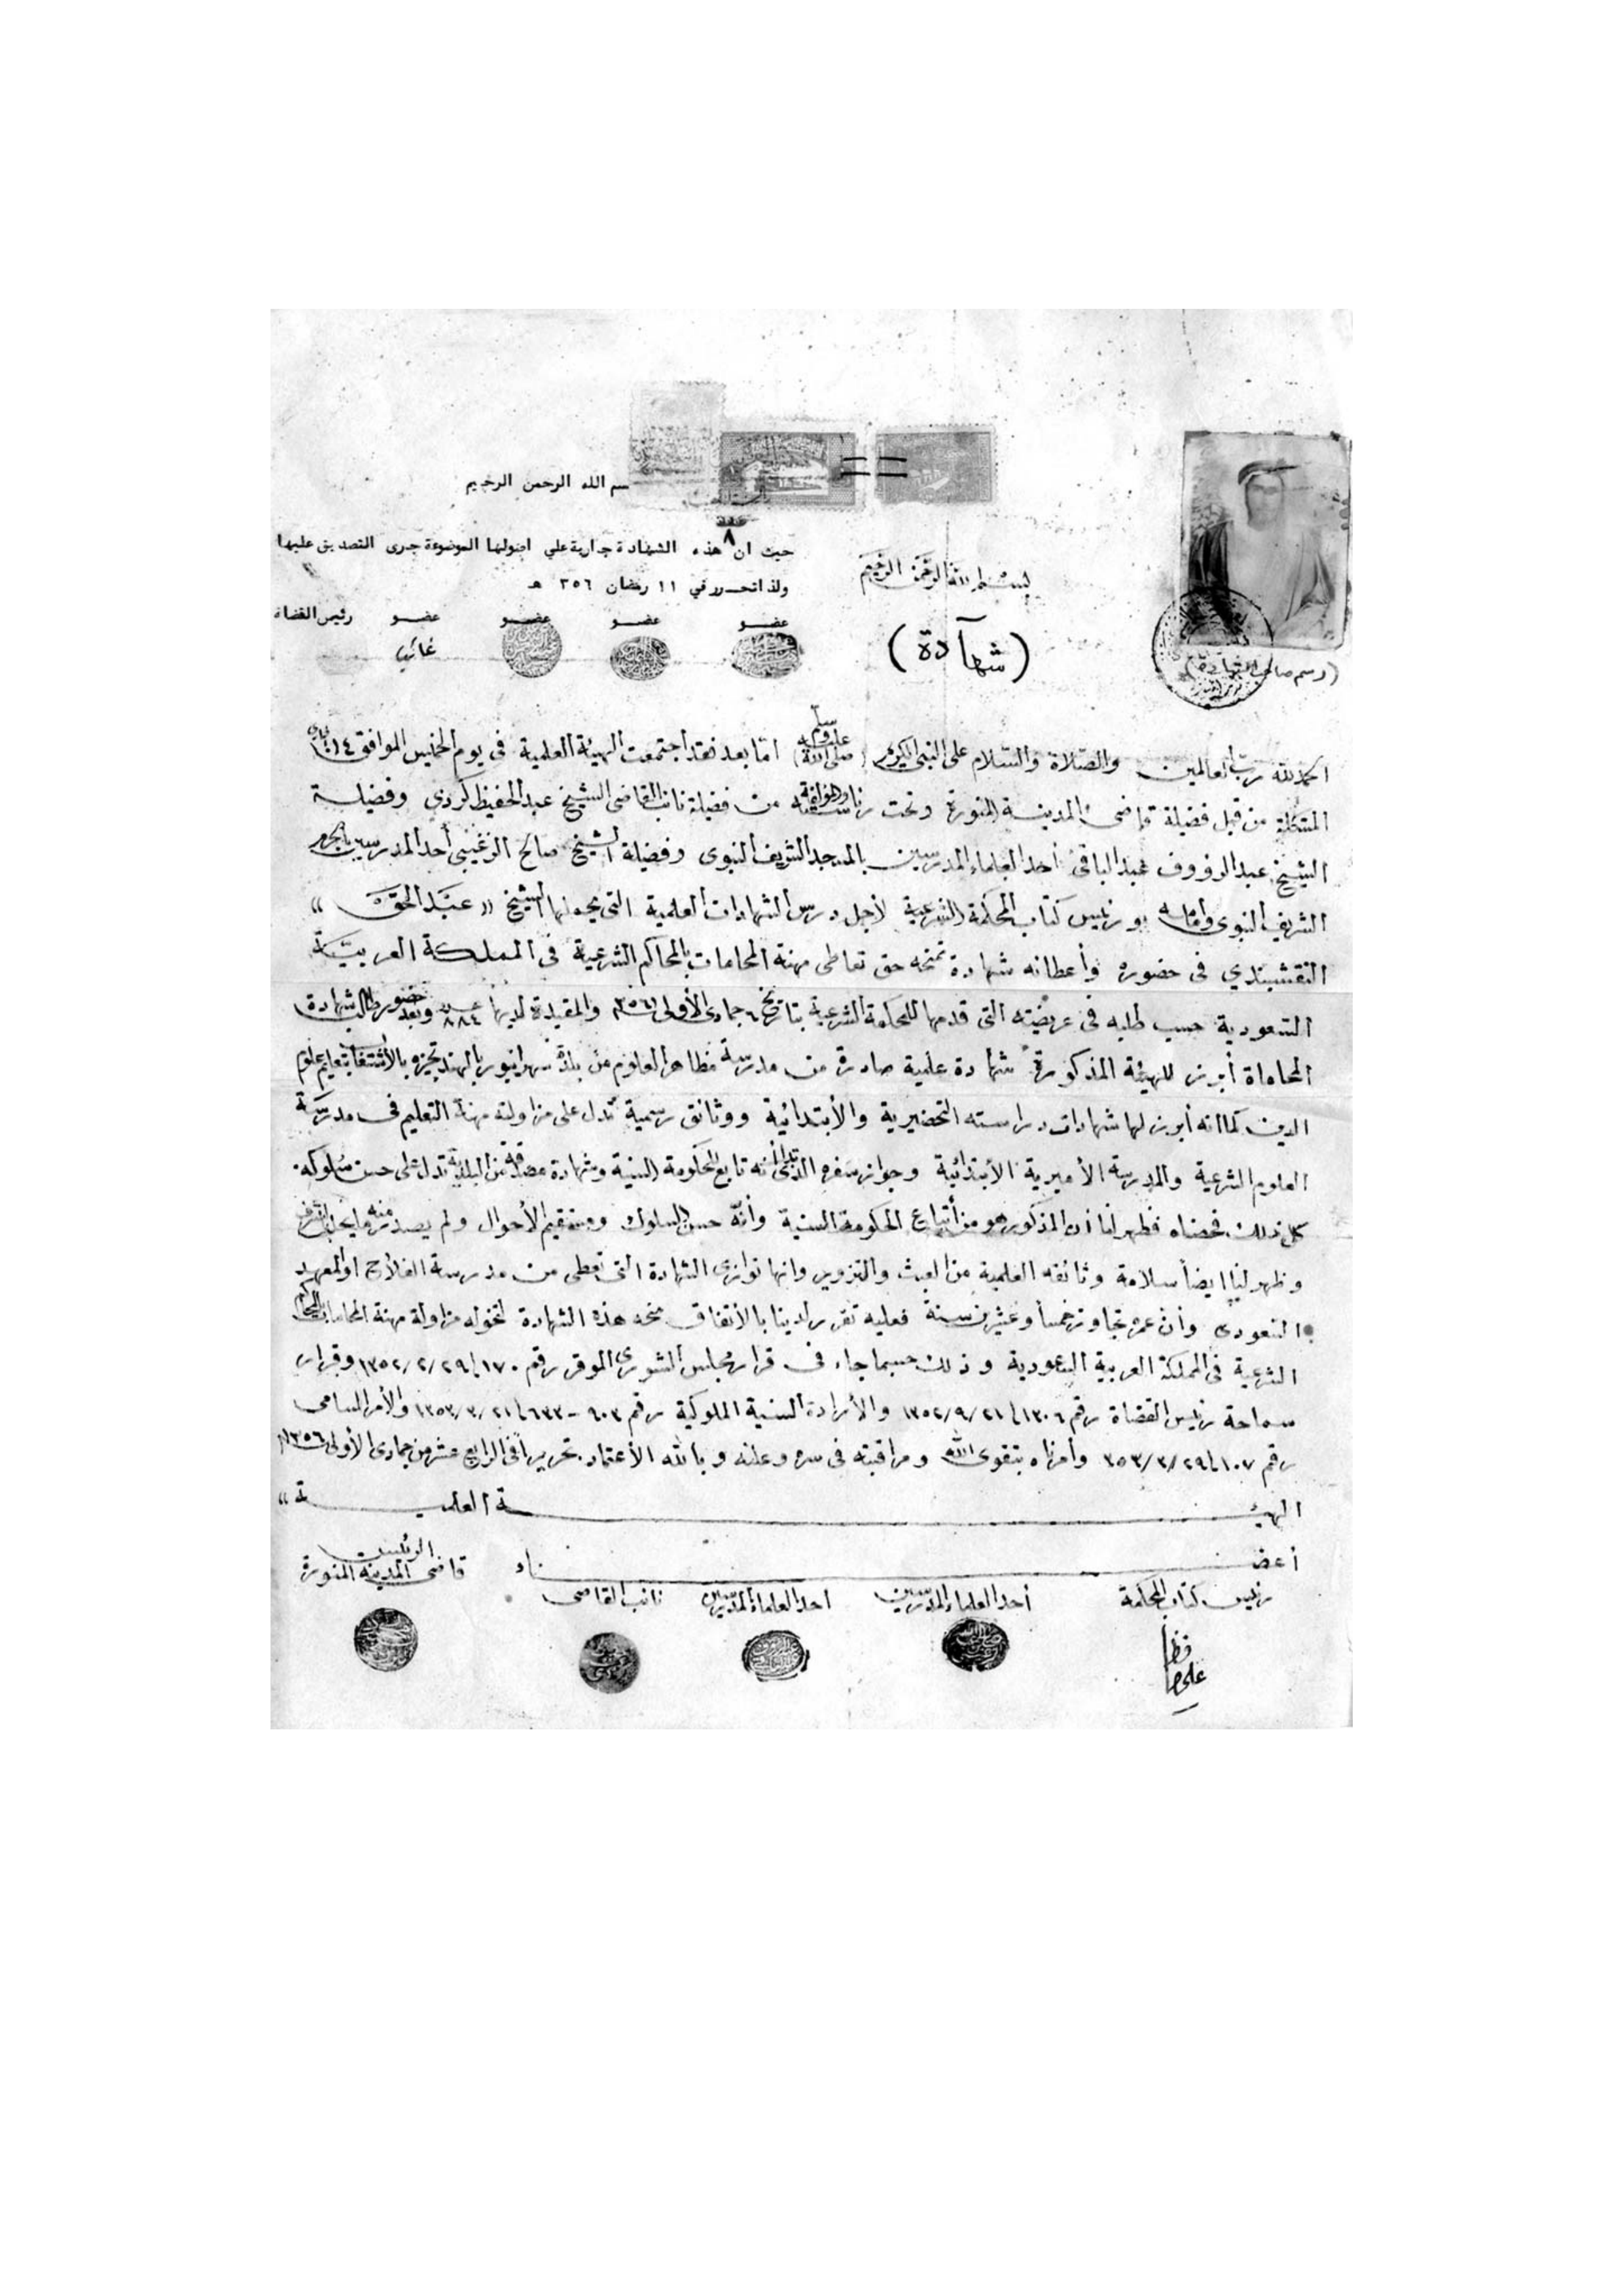 بسم الله الرحمن الرحيم
٨
حيث ان هذه الشهادة جارية على اصولها الموضوعة جرى التصديق عليها
ولذا تحرر في ١١ رمضان ٣٥٦ هـ
عضو عضو عضو عضو رئيس القضاة
غائب
بسم الله الرحمن الرحيم
(شهآدة)
(رسم صاحب الشهادة)
الحمد لله رب العالمين والصلاة والسلام على النبي الكريم (صلى الله عليه وسلم) اما بعد فقد اجتمعت الهيئة العلمية في يوم الخميس الموافق ١٤
المشكلة من قبل فضيلة قاضي المدينة المنورة وتحت رئاسته من فضيلة نائب القاضي الشيخ عبد الحفيظ كردي وفضيلة
الشيخ عبد الرؤوف عبد الباقي أحد العلماء المدرسين بالمسجد الشريف النبوي وفضيلة الشيخ صالح الزغيبي أحد المدرسين بالحرم
الشريف النبوي ورئيس كتاب المحكمة الشرعية لأجل درس الشهادات العلمية التي يحملها الشيخ « عبد الحق »
النقشبندي في حضوره وأعطائه شهادة تمنحه حق تعاطي مهنة المحامات بالمحاكم الشرعية في المملكة العربية
السعودية حسب طلبه في عريضته التي قدمها للمحكمة الشرعية بتاريخ ٦ جمادى الأولى ٣٥٦ والمقيدة لديها عدد ٨٨٤ وبعد حضور طالب شهادة
المحاماة أبرز للهيئة المذكورة شهادة علمية صادرة من مدرسة مظاهر العلوم من بلدة سهرانبور بالهند تجيزه بالأشتغال بتعليم علوم
الدين كما انه أبرز لها شهادات دراسته التحضيرية والأبتدائية ووثائق رسمية تدل على مزاولته مهنة التعليم في مدرسة
العلوم الشرعية والمدرسة الأميرية الأبتدائية وجواز سفره الدال انه تابع للحكومة السنية وشهادة مصدقة من البلدية تدل على حسن سلوكه.
كل ذلك فحصناه فظهر لنا أن المذكور هو من أتباع الحكومة السنية وأنه حسن السلوك ومستقيم الأحوال ولم يصدر منه ما يخل بالشرف
وظهر لنا ايضاً سلامة وثائقه العلمية من العبث والتزوير وانها توازي الشهادة التي تعطى من مدرسة الفلاح او المعهد
السعودي وأن عمره تجاوز خمساً وعشرين سنة فعليه تقرر لدينا بالأتفاق منحه هذه الشهادة لتخوله مزاولة مهنة المحامات بالمحاكم
الشرعية في المملكة العربية السعودية وذلك حسبما جاء في قرار مجلس الشورى الموقر رقم ١٧٠ / ٢٩ / ٢ / ١٣٥٢ وقرار
سماحة رئيس القضاة رقم ١٣٠٦ / ٢١ / ٩ / ١٣٥٢ والأرادة السنية الملوكية رقم ٦٠٣ - ٦٣٣ / ٢١ / ٣ / ١٣٥٣ والأمر السامي
رقم ١٠٧ / ٢٩ / ٣ / ٣٥٣ وأمرناه بتقوى الله ومراقبته في سره وعلنه وبالله الأعتماد. تحريراً في الرابع عشر من جمادى الأولى ١٣٥٦
الهيئة العلمية »
أعضاء
الرئيس
قاضي المدينة المنورة
رئيس كتاب المحكمة أحد العلماء المدرسين احد العلماء المدرسين نائب القاضي